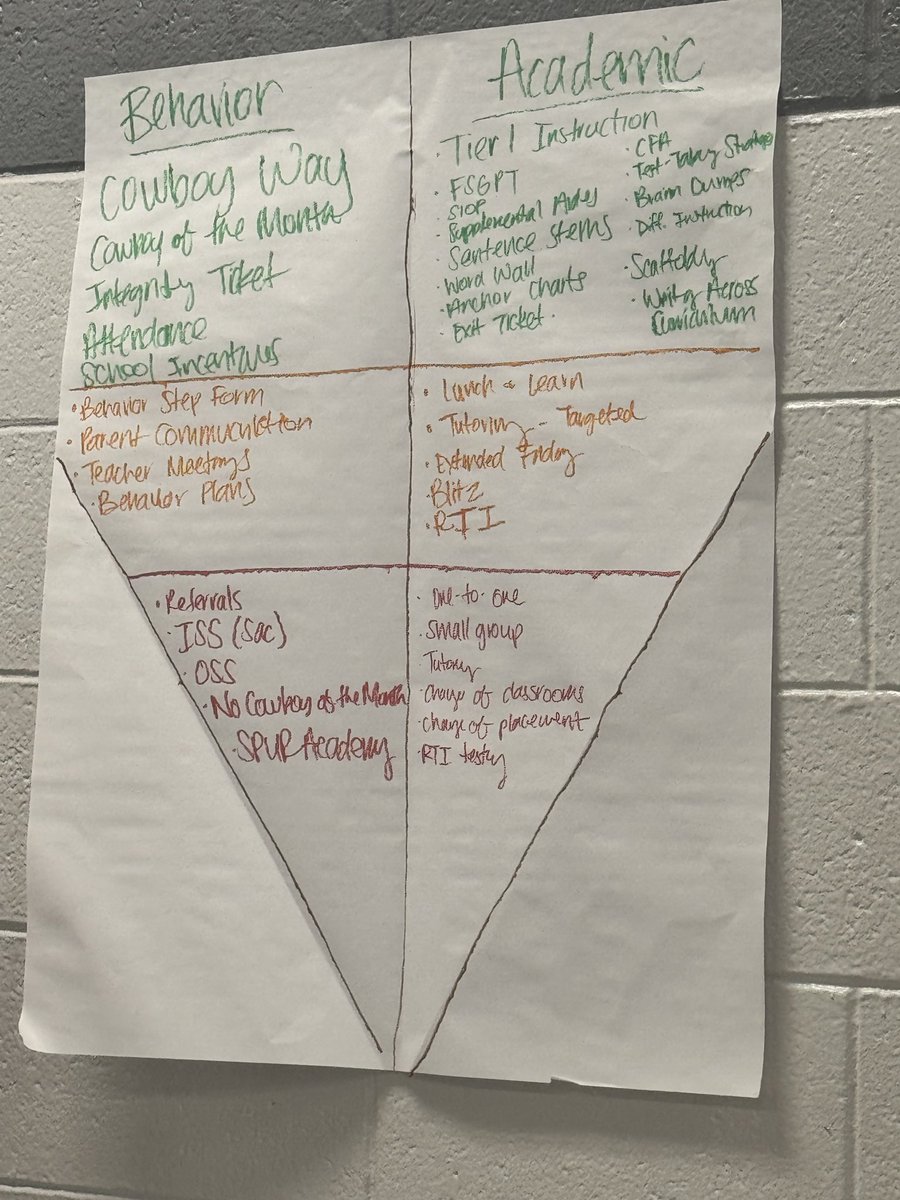 Behavior
Cowboy Way
Cowboy of the Month
Integrity Ticket
Attendance
School Incentives
• Behavior Step Form
• Parent Communication
• Teacher Meetings
• Behavior Plans
• Referrals
• ISS (Sac)
• OSS
• No Cowboy of the Month
• SPUR Academy
Academic
• Tier 1 Instruction
• FSGPT
• SIOP
• Supplemental Aides
• Sentence Stems
• Word Wall
• Anchor Charts
• Exit Ticket
• CFA
• Test-Taking Strategies
• Brain Dumps
• Diff. Instruction
• Scaffoldg
• Writing Across
Curriculum
• Lunch & Learn
• Tutoring - Targeted
• Extended Friday
• Blitz
• RTI
• One-to-one
• Small group
• Tutoring
• Change of classrooms
• Change of placement
• RTI testing